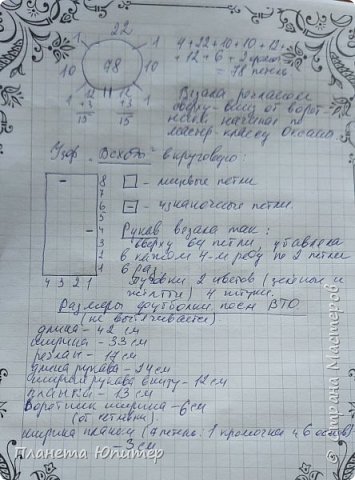 22
1 1 4+22+10+10+12+
10 78 10 +12+6+2
= 78 петель
1 12 12 1
+3 +3
15 15
Вязала регланом
сверху вниз от ворот-
ника, начиная по
мастер-классу Оксаны
Узор вкруговую:
8 - лицевые петли
7
6 - изнаночные петли.
5
4 Рукав вязала так:
3 сверху 64 петли, убавляла
2 в каждом 4-м ряду по 2 петли
1 6 раз.
4 3 2 1 Пуговки 2 цветов (зелёные и
жёлтые) 4 штуки.
Размеры футболки после ВТО
(не вытягивается)
длина - 42 см
ширина - 33 см
реглан - 17 см
длина рукава - 14 см
ширина рукава внизу - 12 см
планки - 13 см
Воротник ширина - 6 см
ширина планки (7 петель: 1 кромочная и 6 основ)
- 3 см
Планета Юпитер
Страна Мастеров